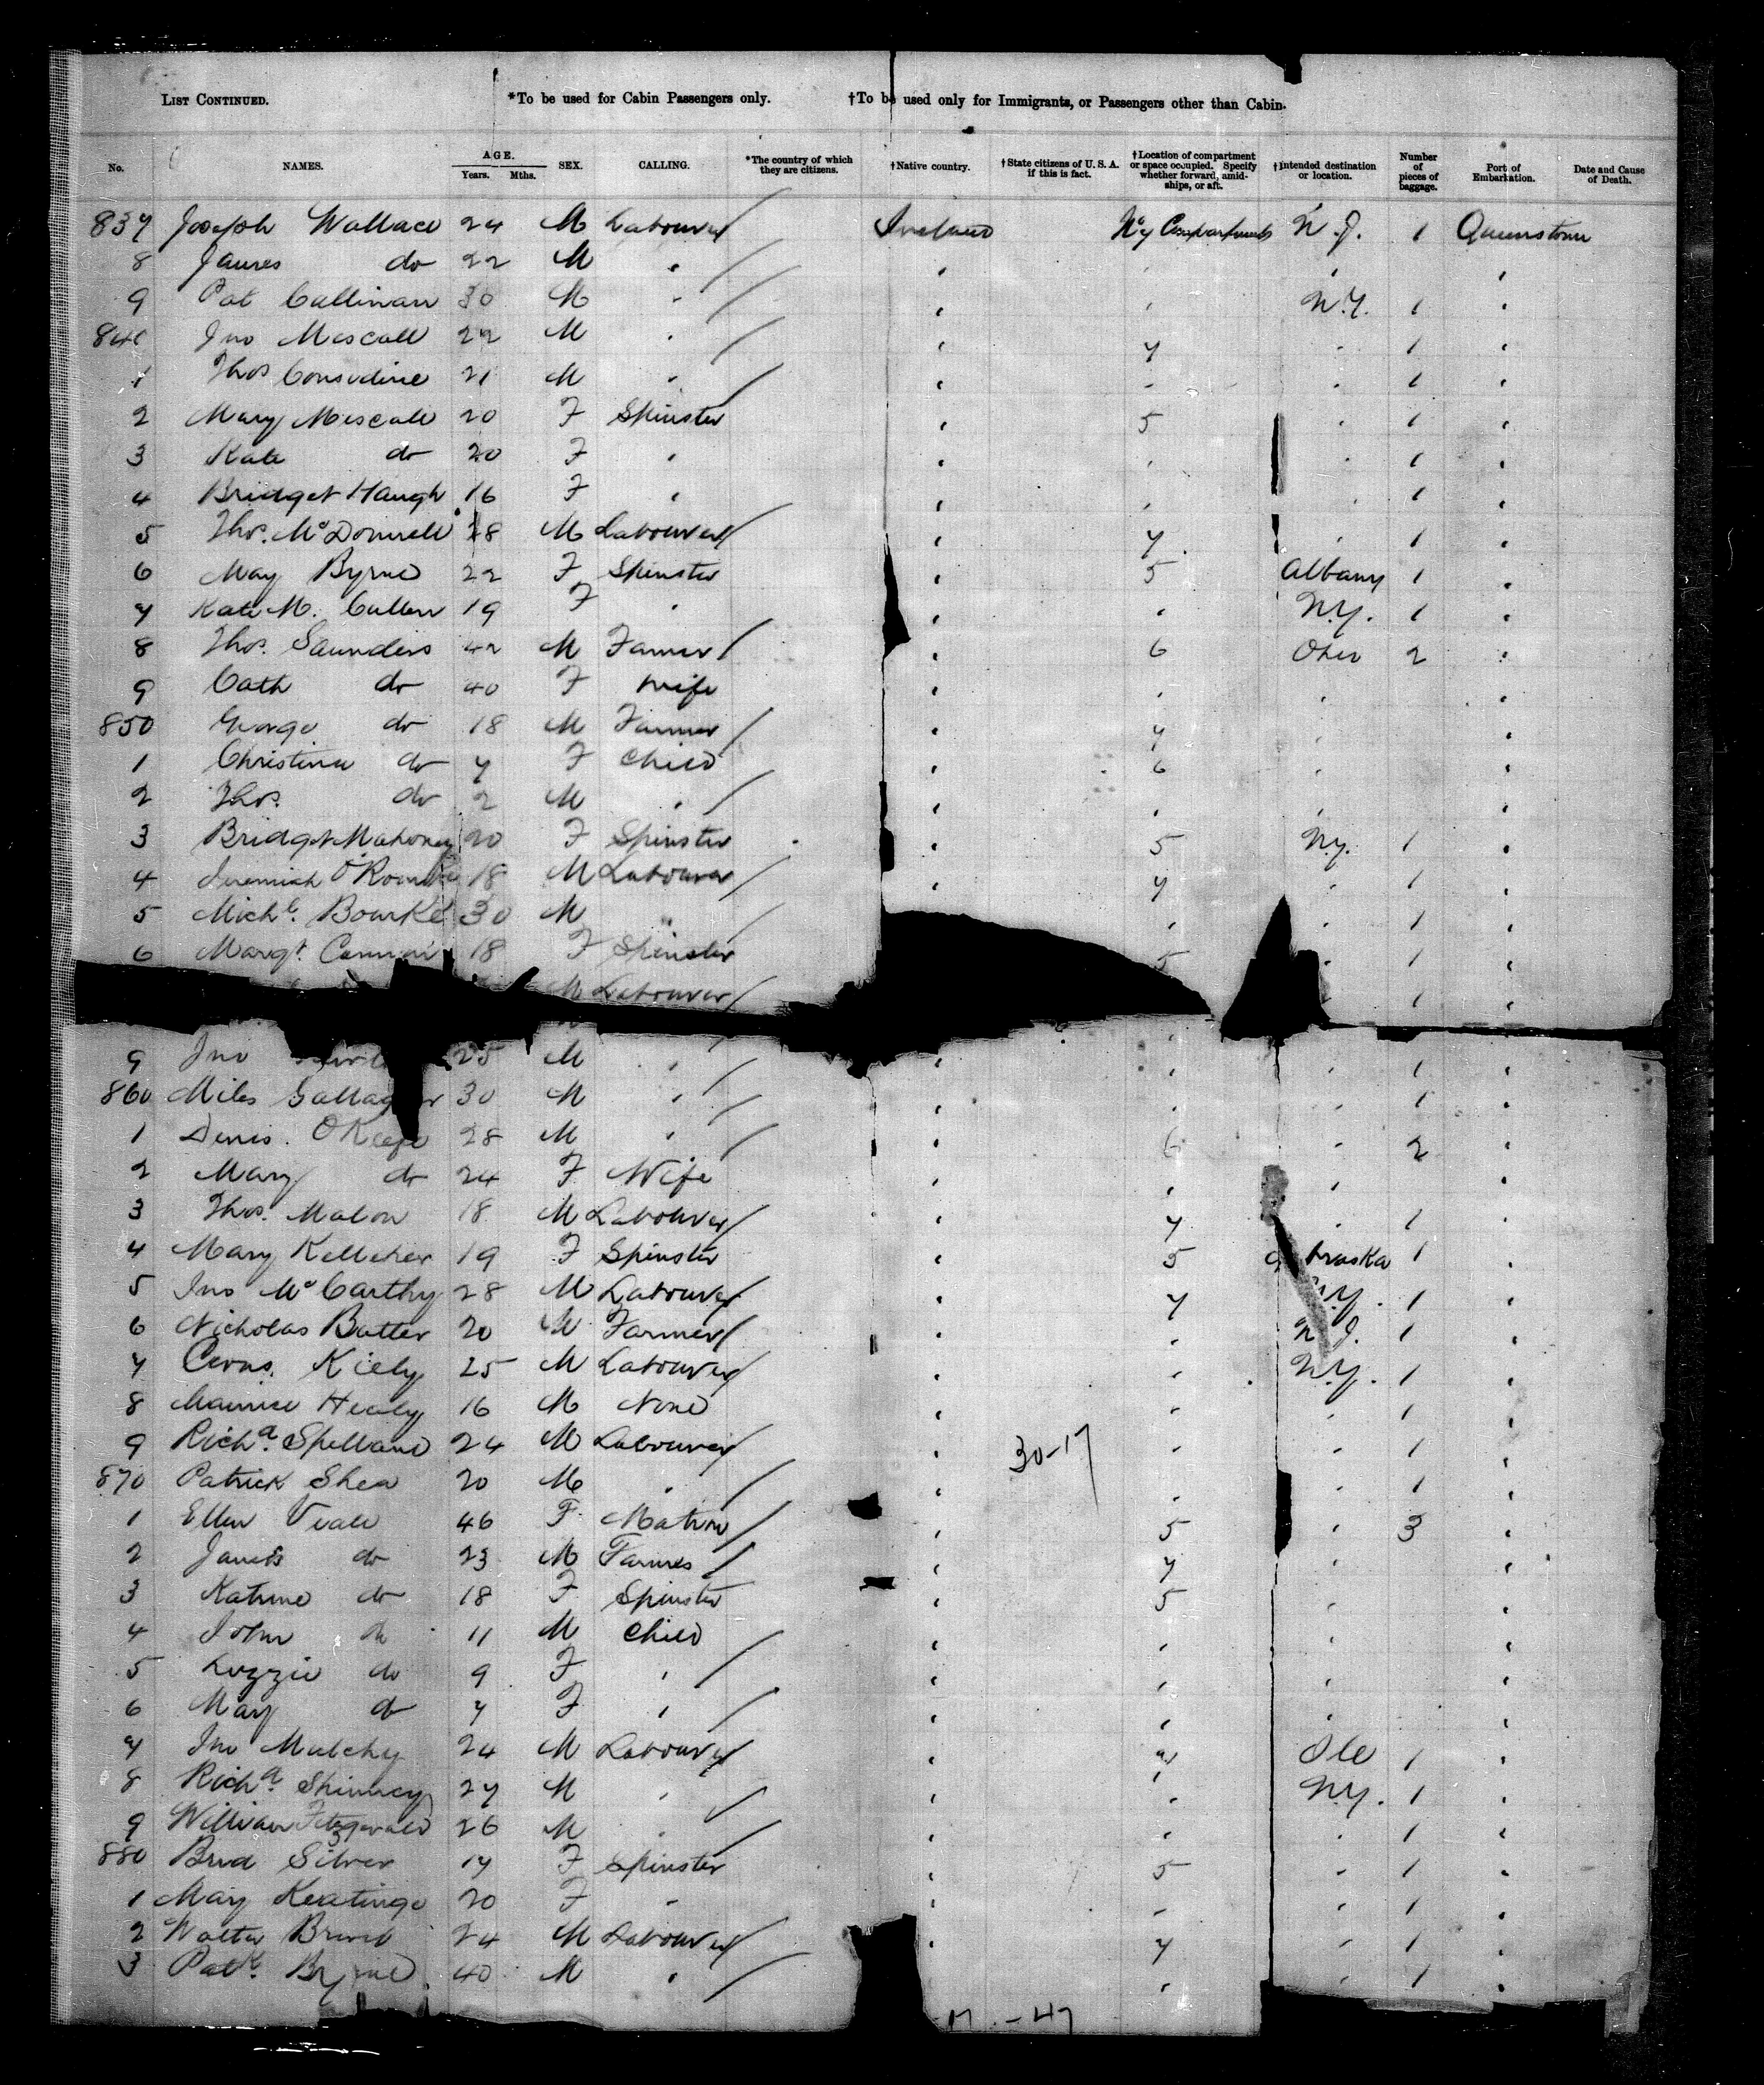 LIST CONTINUED. *To be used for Cabin Passengers only. †To be used only for Immigrants, or Passengers other than Cabin.
No. NAMES. AGE. Years. Mths. SEX. CALLING. *The country of which they are citizens. †Native country. †State citizens of U.S.A. if this is fact. †Location of compartment or space occupied. Specify whether forward, amidships, or aft. †Intended destination or location. Number of pieces of baggage. Port of Embarkation. Date and Cause of Death.
837 Joseph Wallace 24 M Labourer Ireland No 7 Compartment N.J. 1 Queenstown
8 James do 22 M " " " " "
9 Pat Cullinan 30 M " " " N.Y. 1 "
840 Jno Mescall 22 M " " 7 " 1 "
1 Thos Considine 21 M " " " " 1 "
2 Mary Mescall 20 F Spinster " 5 " 1 "
3 Kate do 20 F " " " " 1 "
4 Bridget Haugh 16 F " " " " 1 "
5 Thos. McDonnell 28 M Labourer " 7 " 1 "
6 May Byrne 22 F Spinster " 5 Albany 1 "
7 Kate M. Cullen 19 F " " " N.Y. 1 "
8 Thos. Saunders 42 M Farmer " 6 Ohio 2 "
9 Cath do 40 F Wife " " " "
850 George do 18 M Farmer " 7 " "
1 Christina do 7 F Child " 6 " "
2 Thos. do 2 M " " " " "
3 Bridget Mahoney 20 F Spinster " 5 N.Y. 1 "
4 Jeremiah 18 M Labourer " 7 " 1 "
5 Michl. Bourke 30 M " " " 1 "
6 Margt. 18 F Spinster 5 " 1 "
M Labourer " 1 "
9 Jno 25 M " " " " 1 "
860 Miles Gallagher 30 M " " " 1 "
1 Denis. O'Keefe 28 M " " 6 " 2 "
2 Mary do 24 F Wife " " " "
3 Thos. Malon 18 M Labourer " 7 " 1 "
4 Mary Kelleher 19 F Spinster " 5 braska 1 "
5 Jno McCarthy 28 M Labourer " 7 N.Y. 1 "
6 Nicholas Butler 20 M Farmer " " N.J. 1 "
7 Corns. Kiely 25 M Labourer " " N.Y. 1 "
8 Maurice Healy 16 M None " " " 1 "
9 Richd. Spellane 24 M Labourer " 30-17 " " 1 "
870 Patrick Shea 20 M " " " 1 "
1 Ellen Veale 46 F Matron " 5 " 3 "
2 James do 23 M Farmer " 7 " "
3 Katrine do 18 F Spinster " 5 " "
4 John do 11 M Child " " " "
5 Lizzie do 9 F " " " " "
6 Mary do 7 F " " " " "
7 Jno Mulchy 24 M Labourer " 7 Ill 1 "
8 Richd. Shinney 27 M " " " N.Y. 1 "
9 William Fitzgerald 26 M " " " " 1 "
880 Brid Silver 17 F Spinster " 5 " 1 "
1 May Keatinge 20 F " " " " 1 "
2 Walter 24 M Labourer " 7 " 1 "
3 Patk. Byrne 40 M " " " 1 "
- 47